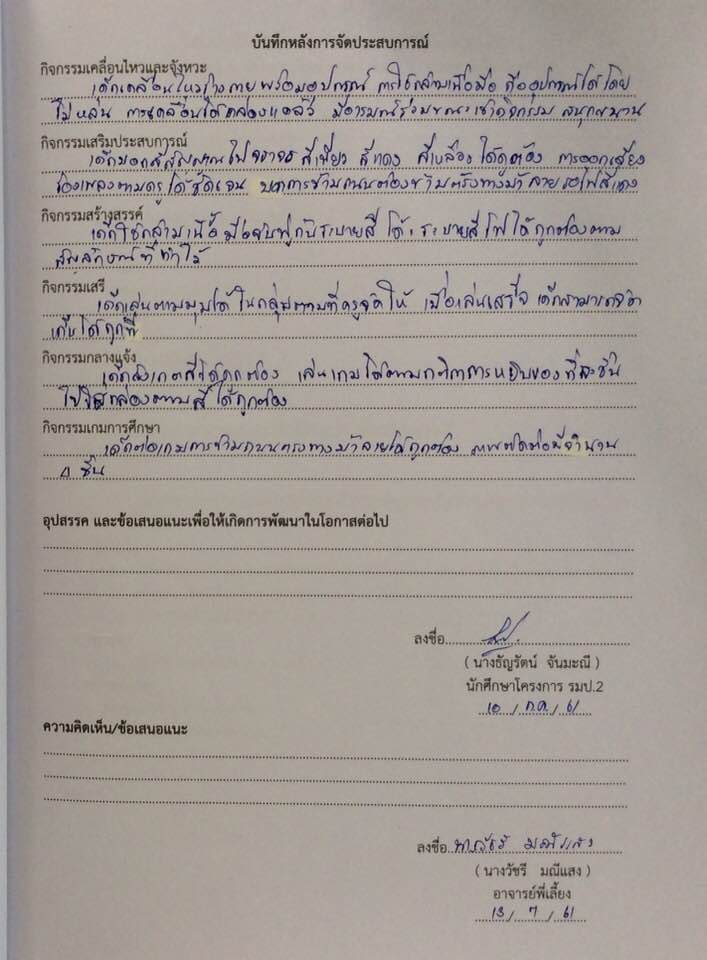 บันทึกหลังการจัดประสบการณ์
กิจกรรมเคลื่อนไหวและจังหวะ
เด็กเคลื่อนไหวร่างกายพร้อมอุปกรณ์ การใช้กล้ามเนื้อมือ ถืออุปกรณ์ได้โดย
ไม่หล่น การเคลื่อนไหวคล่องแคล่ว มีอารมณ์ร่วมขณะเข้ากิจกรรม สนุกสนาน
กิจกรรมเสริมประสบการณ์
เด็กบอกสีสัญญาณไฟจราจร สีเขียว สีแดง สีเหลือง ได้ถูกต้อง การออกเสียง
ร้องเพลงตามครูได้ชัดเจน บอกการข้ามถนนต้องข้ามตรงทางม้าลายรอไฟสีแดง
กิจกรรมสร้างสรรค์
เด็กใช้กล้ามเนื้อมือจับพู่กันระบายสี ได้ระบายสีไฟได้ถูกต้องตาม
สัญลักษณ์ที่ทำไว้
กิจกรรมเสรี
เด็กเล่นตามมุมได้ในกลุ่มตามที่ครูจัดให้ เมื่อเล่นเสร็จ เด็กสามารถจัด
เก็บได้ถูกที่
กิจกรรมกลางแจ้ง
เด็กสังเกตสีได้ถูกต้อง เล่นเกมได้ตามกติกาการหยิบของทีละชิ้น
ไปใส่กล่องตามสีได้ถูกต้อง
กิจกรรมเกมการศึกษา
เด็กต่อเกมการข้ามถนนตรงทางม้าลายได้ถูกต้อง ภาพตัดต่อมีจำนวน
4 ชิ้น
อุปสรรค และข้อเสนอแนะเพื่อให้เกิดการพัฒนาในโอกาสต่อไป
ลงชื่อ
( นางธัญรัตน์ จันมะณี )
นักศึกษาโครงการ รมป.2
10 / ก.ค. / 61
ความคิดเห็น/ข้อเสนอแนะ
ลงชื่อ มณีแสง
( นางวัชรี มณีแสง )
อาจารย์พี่เลี้ยง
13 / 7 / 61